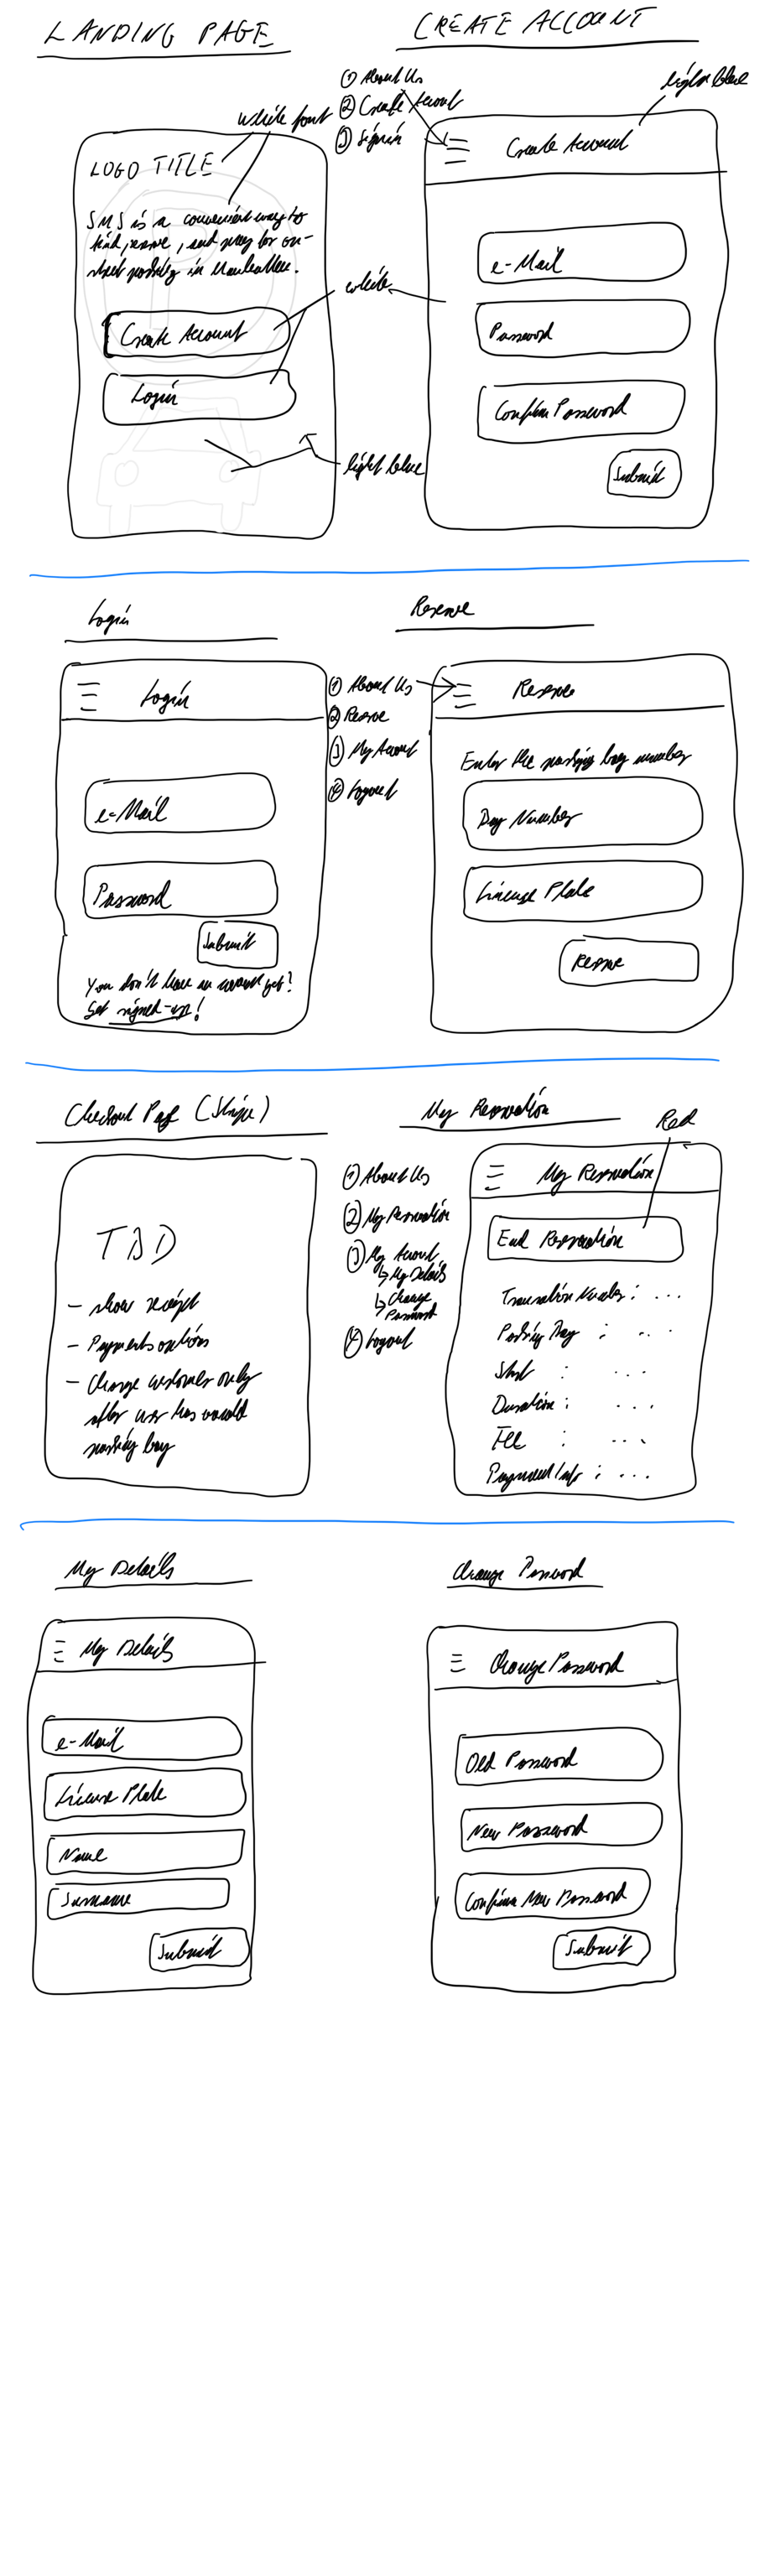 LANDING PAGE
CREATE ACCOUNT
① About Us
② Create Account
③ Sign in
light blue
white font
LOGO TITLE
SMS is a convenient way to
find, reserve, and pay for on-
street parking in Manhattan.
Create Account
Login
white
light blue
Create Account
e-Mail
Password
Confirm Password
Submit
Login
Reserve
Login
e-Mail
Password
Submit
You don't have an account yet?
Get signed-up!
① About Us
② Reserve
③ My Account
④ Logout
Reserve
Enter the parking bay number
Bay Number
License Plate
Reserve
Checkout Page (Stripe)
My Reservation
Red
TBD
- show receipt
- Payments options
- Charge customers only
after user has vacated
parking bay
① About Us
② My Reservation
③ My Account
↳ My Details
↳ Change
Password
④ Logout
My Reservation
End Reservation
Transaction Number : ...
Parking Bay : ...
Start : ...
Duration : ...
Fee : ...
Payment Info : ...
My Details
Change Password
My Details
e-Mail
License Plate
Name
Surname
Submit
Change Password
Old Password
New Password
Confirm New Password
Submit